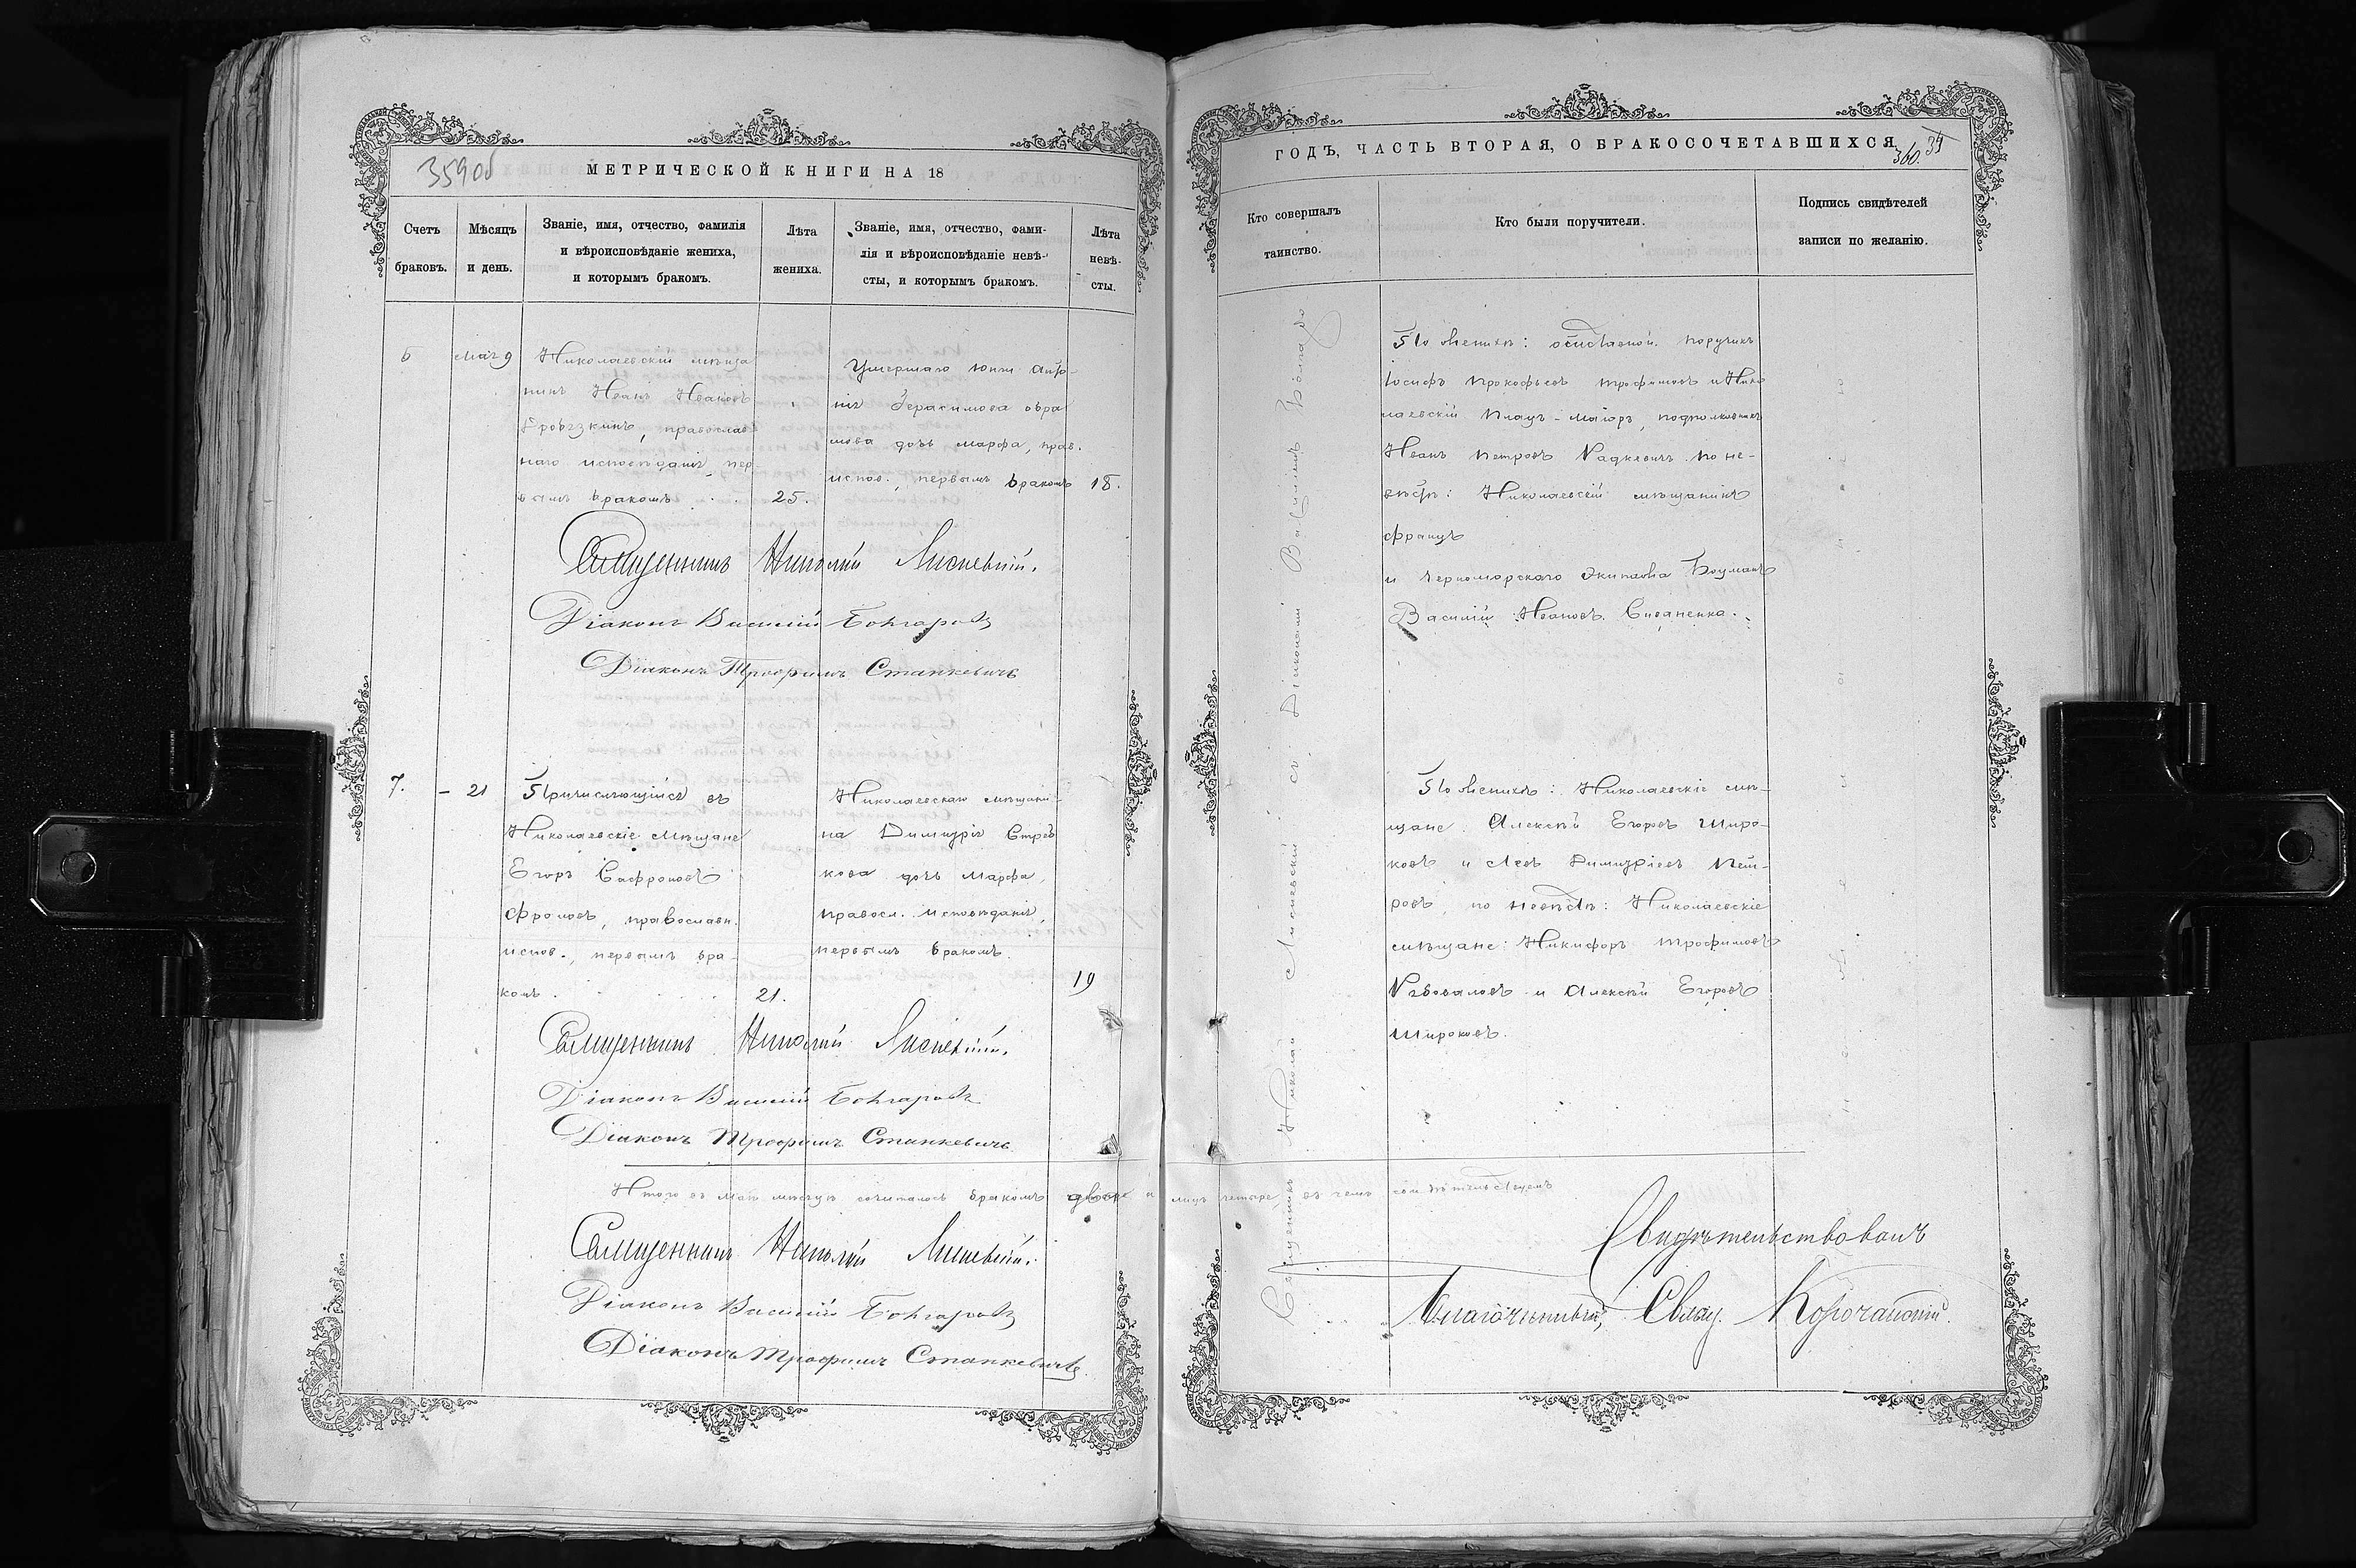 359об
МЕТРИЧЕСКОЙ КНИГИ НА 18
Счетъ браковъ.
Мѣсяцъ и день.
Званіе, имя, отчество, фамилія
и вѣроисповѣданіе жениха,
и которымъ бракомъ.
Лѣта
жениха.
Званіе, имя, отчество, фами-
лія и вѣроисповѣданіе невѣ-
сты, и которымъ бракомъ.
Лѣта
невѣ-
сты.
6
Мая 9
Николаевскій мѣща
нинъ Иванъ Ивановъ
православ
наго исповѣданія, пер-
вымъ бракомъ
25.
Умершаго юнги
Герасимова
дочь Марфа, прав.
испов., первымъ бракомъ
18.
Священникъ Николай Лисневскій.
Діаконъ Василій
Діаконъ Трофимъ Станкевичъ
7.
- 21
Причисляющійся въ
Николаевскіе мѣщане
Егоръ Сафроновъ
Фроловъ, православн.
испов., первымъ бра-
комъ.
21.
Николаевскаго мѣщани-
на Димитрія
кова дочь Марфа,
правосл. исповѣданія,
первымъ бракомъ.
19
Священникъ Николай Лисневскій.
Діаконъ Василій
Діаконъ Трофимъ Станкевичъ
Итого въ маѣ мѣсяцѣ сочеталось бракомъ двое а лицъ четыре, въ чемъ свидѣтельствуемъ
Священникъ Николай Лисневскій.
Діаконъ Василій
Діаконъ Трофимъ Станкевичъ
ГОДЪ, ЧАСТЬ ВТОРАЯ, О БРАКОСОЧЕТАВШИХСЯ
360. 39
Кто совершалъ
таинство.
Кто были поручители.
Подпись свидѣтелей
записи по желанію.
Священникъ Николай Лисневскій съ Діакономъ Василіемъ
По женихѣ: отставной поручикъ
Іосифъ Прокофьевъ Трофимовъ и Нико
лаевскій Плацъ-маіоръ, подполковникъ
Иванъ Петровъ Радкевичъ по не-
вѣстѣ: Николаевскій мѣщанинъ
Францъ
и Черноморскаго экипажа Боцманъ
Василій Ивановъ
По женихѣ: Николаевскіе мѣ-
щане: Алексѣй Егоровъ Широ-
ковъ и Левъ Димитріевъ Пет-
ровъ, по невѣстѣ: Николаевскіе
мѣщане: Никифоръ Трофимовъ
и Алексѣй Егоровъ
Широковъ.
Свидѣтельствовалъ
Благочинный, Свящ.